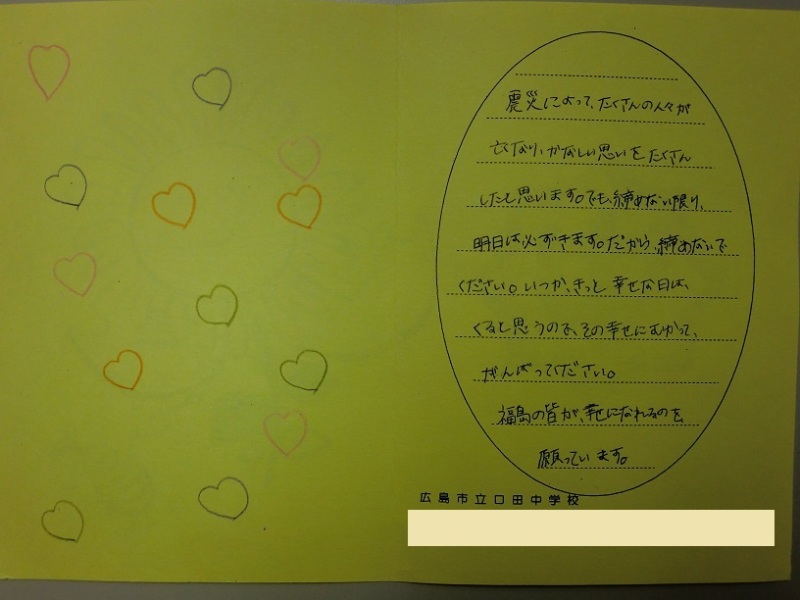 震災によって、たくさんの人々が
亡くなり、かなしい思いをたくさん
したと思います。でも、締めない限り、
明日は必ずきます。だから、締めないで
ください。いつか、きっと幸せな日は、
くると思うので、その幸せにむかって、
がんばってください。
福島の皆が、幸せになれるのを
願っています。
広島市立口田中学校